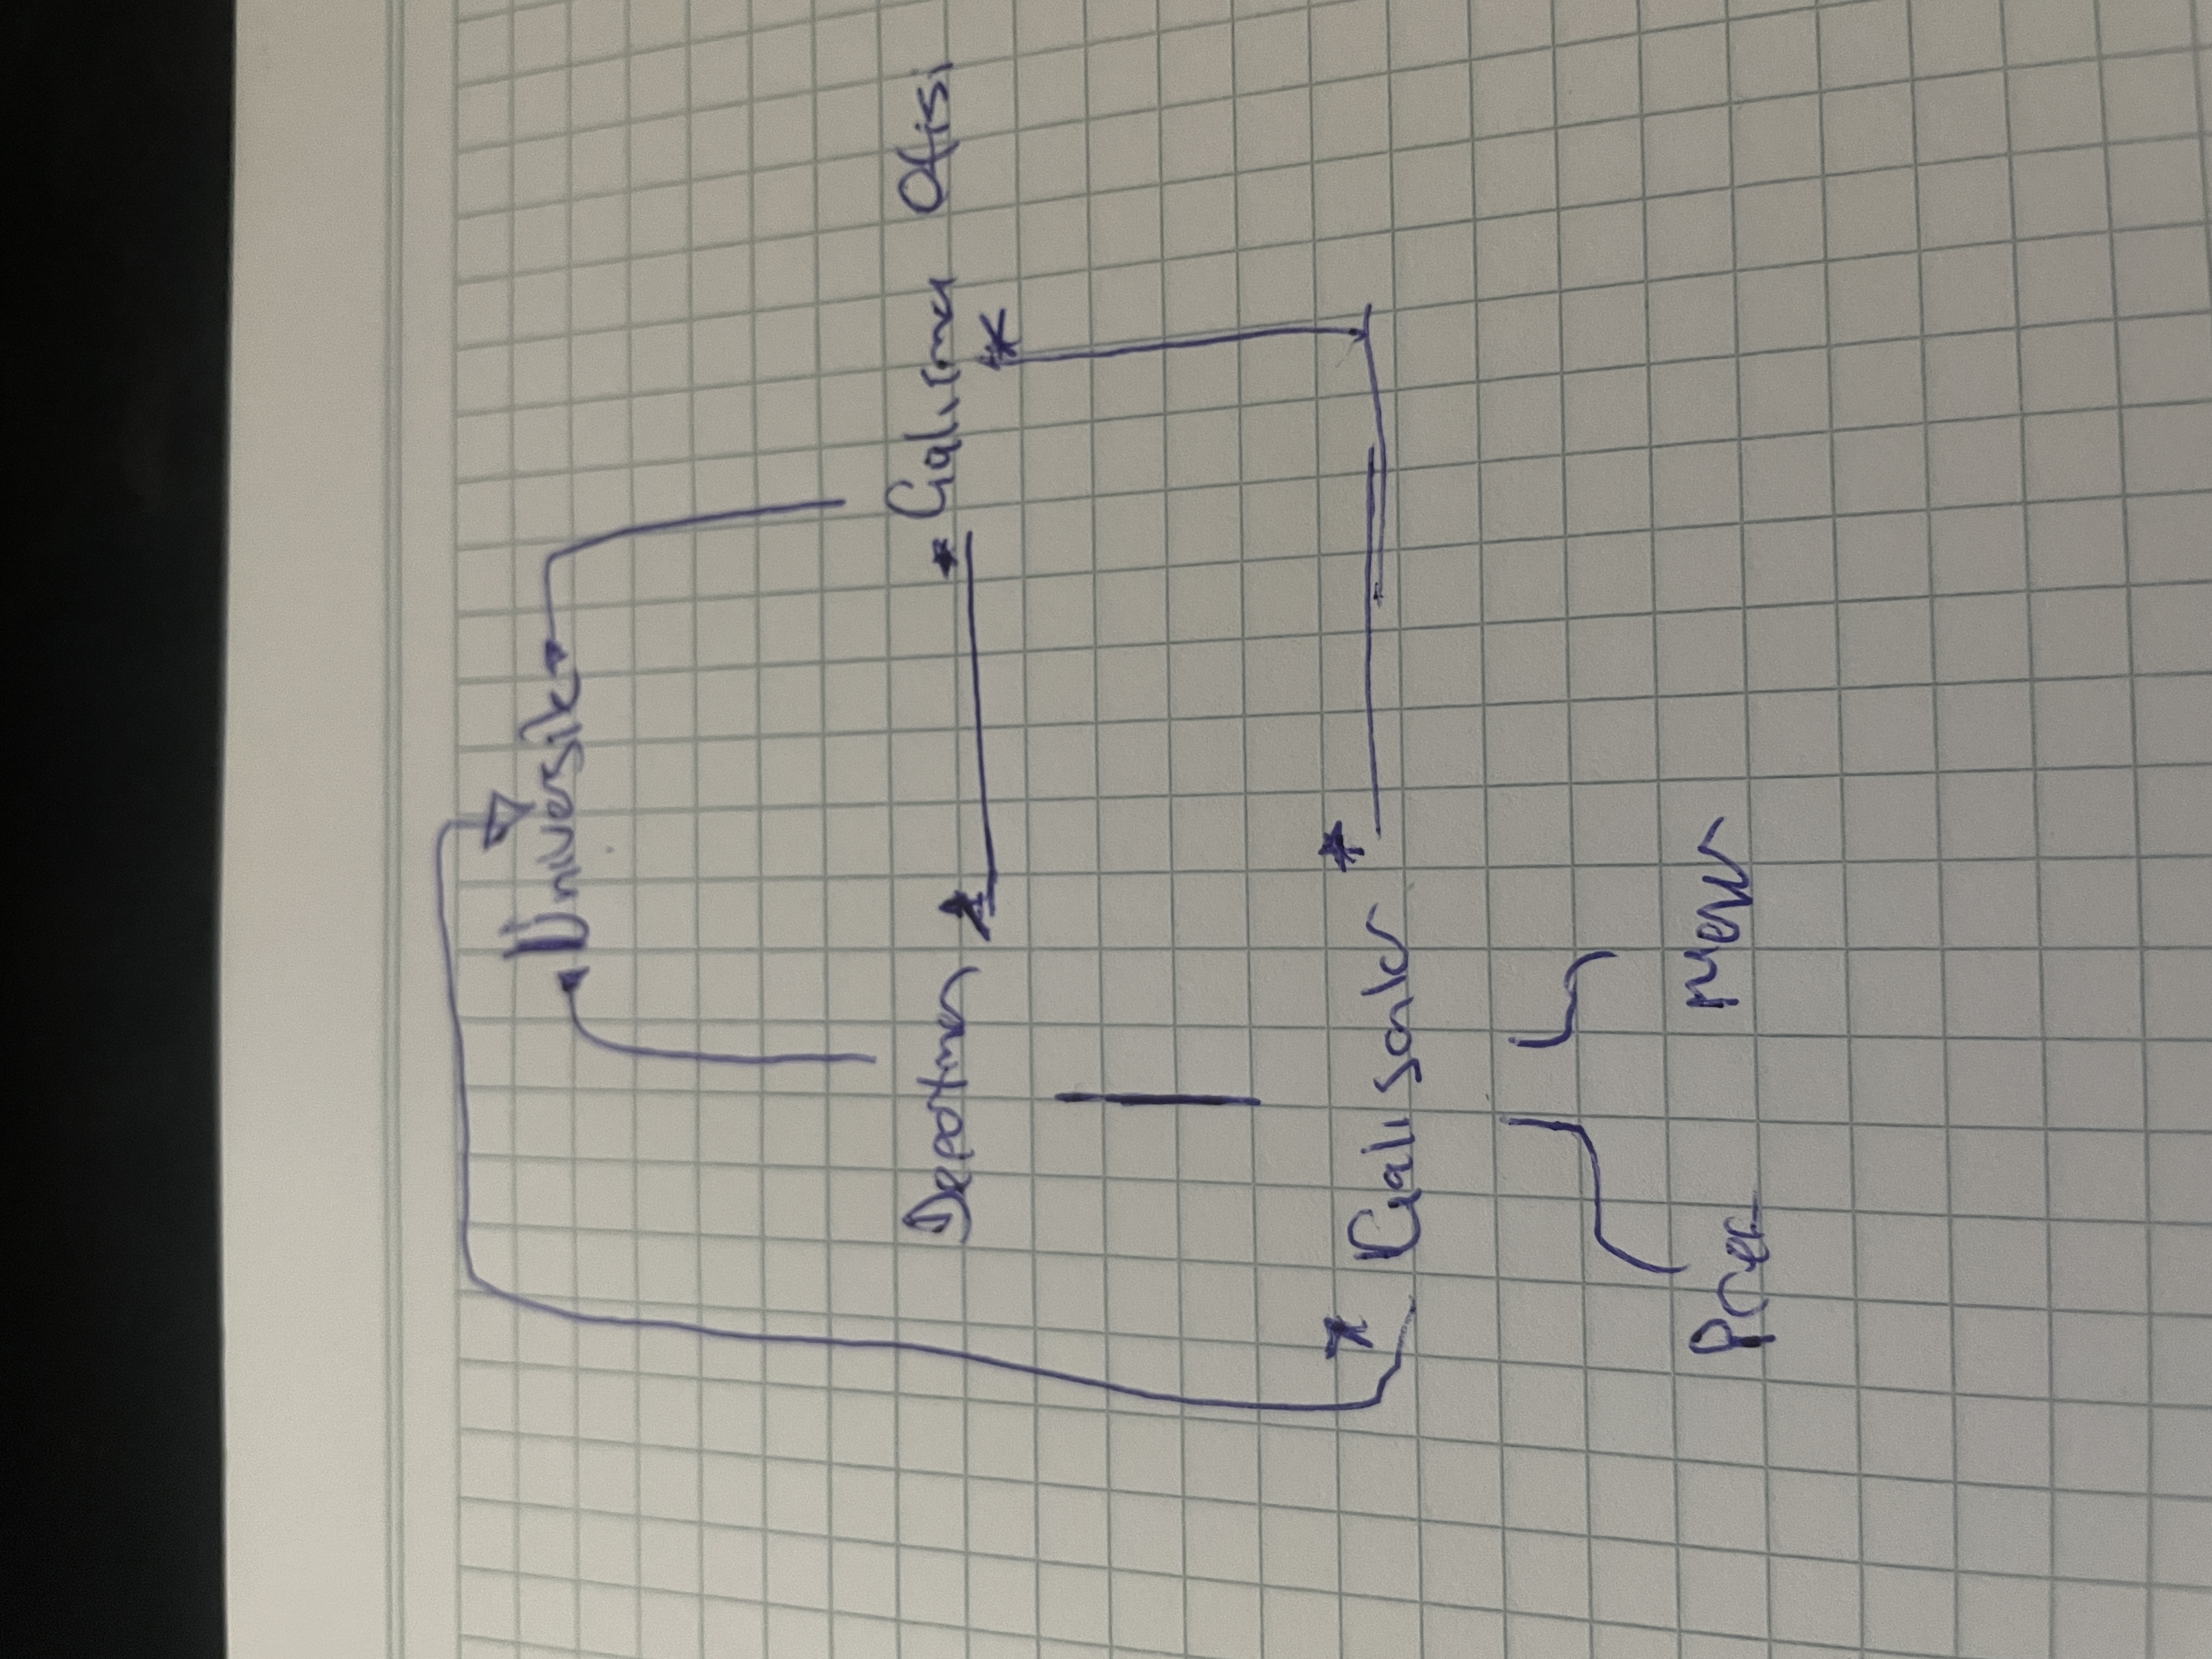 Üniversite
Departman * * Çalışma Ofisi
*
* Çalışanlar *